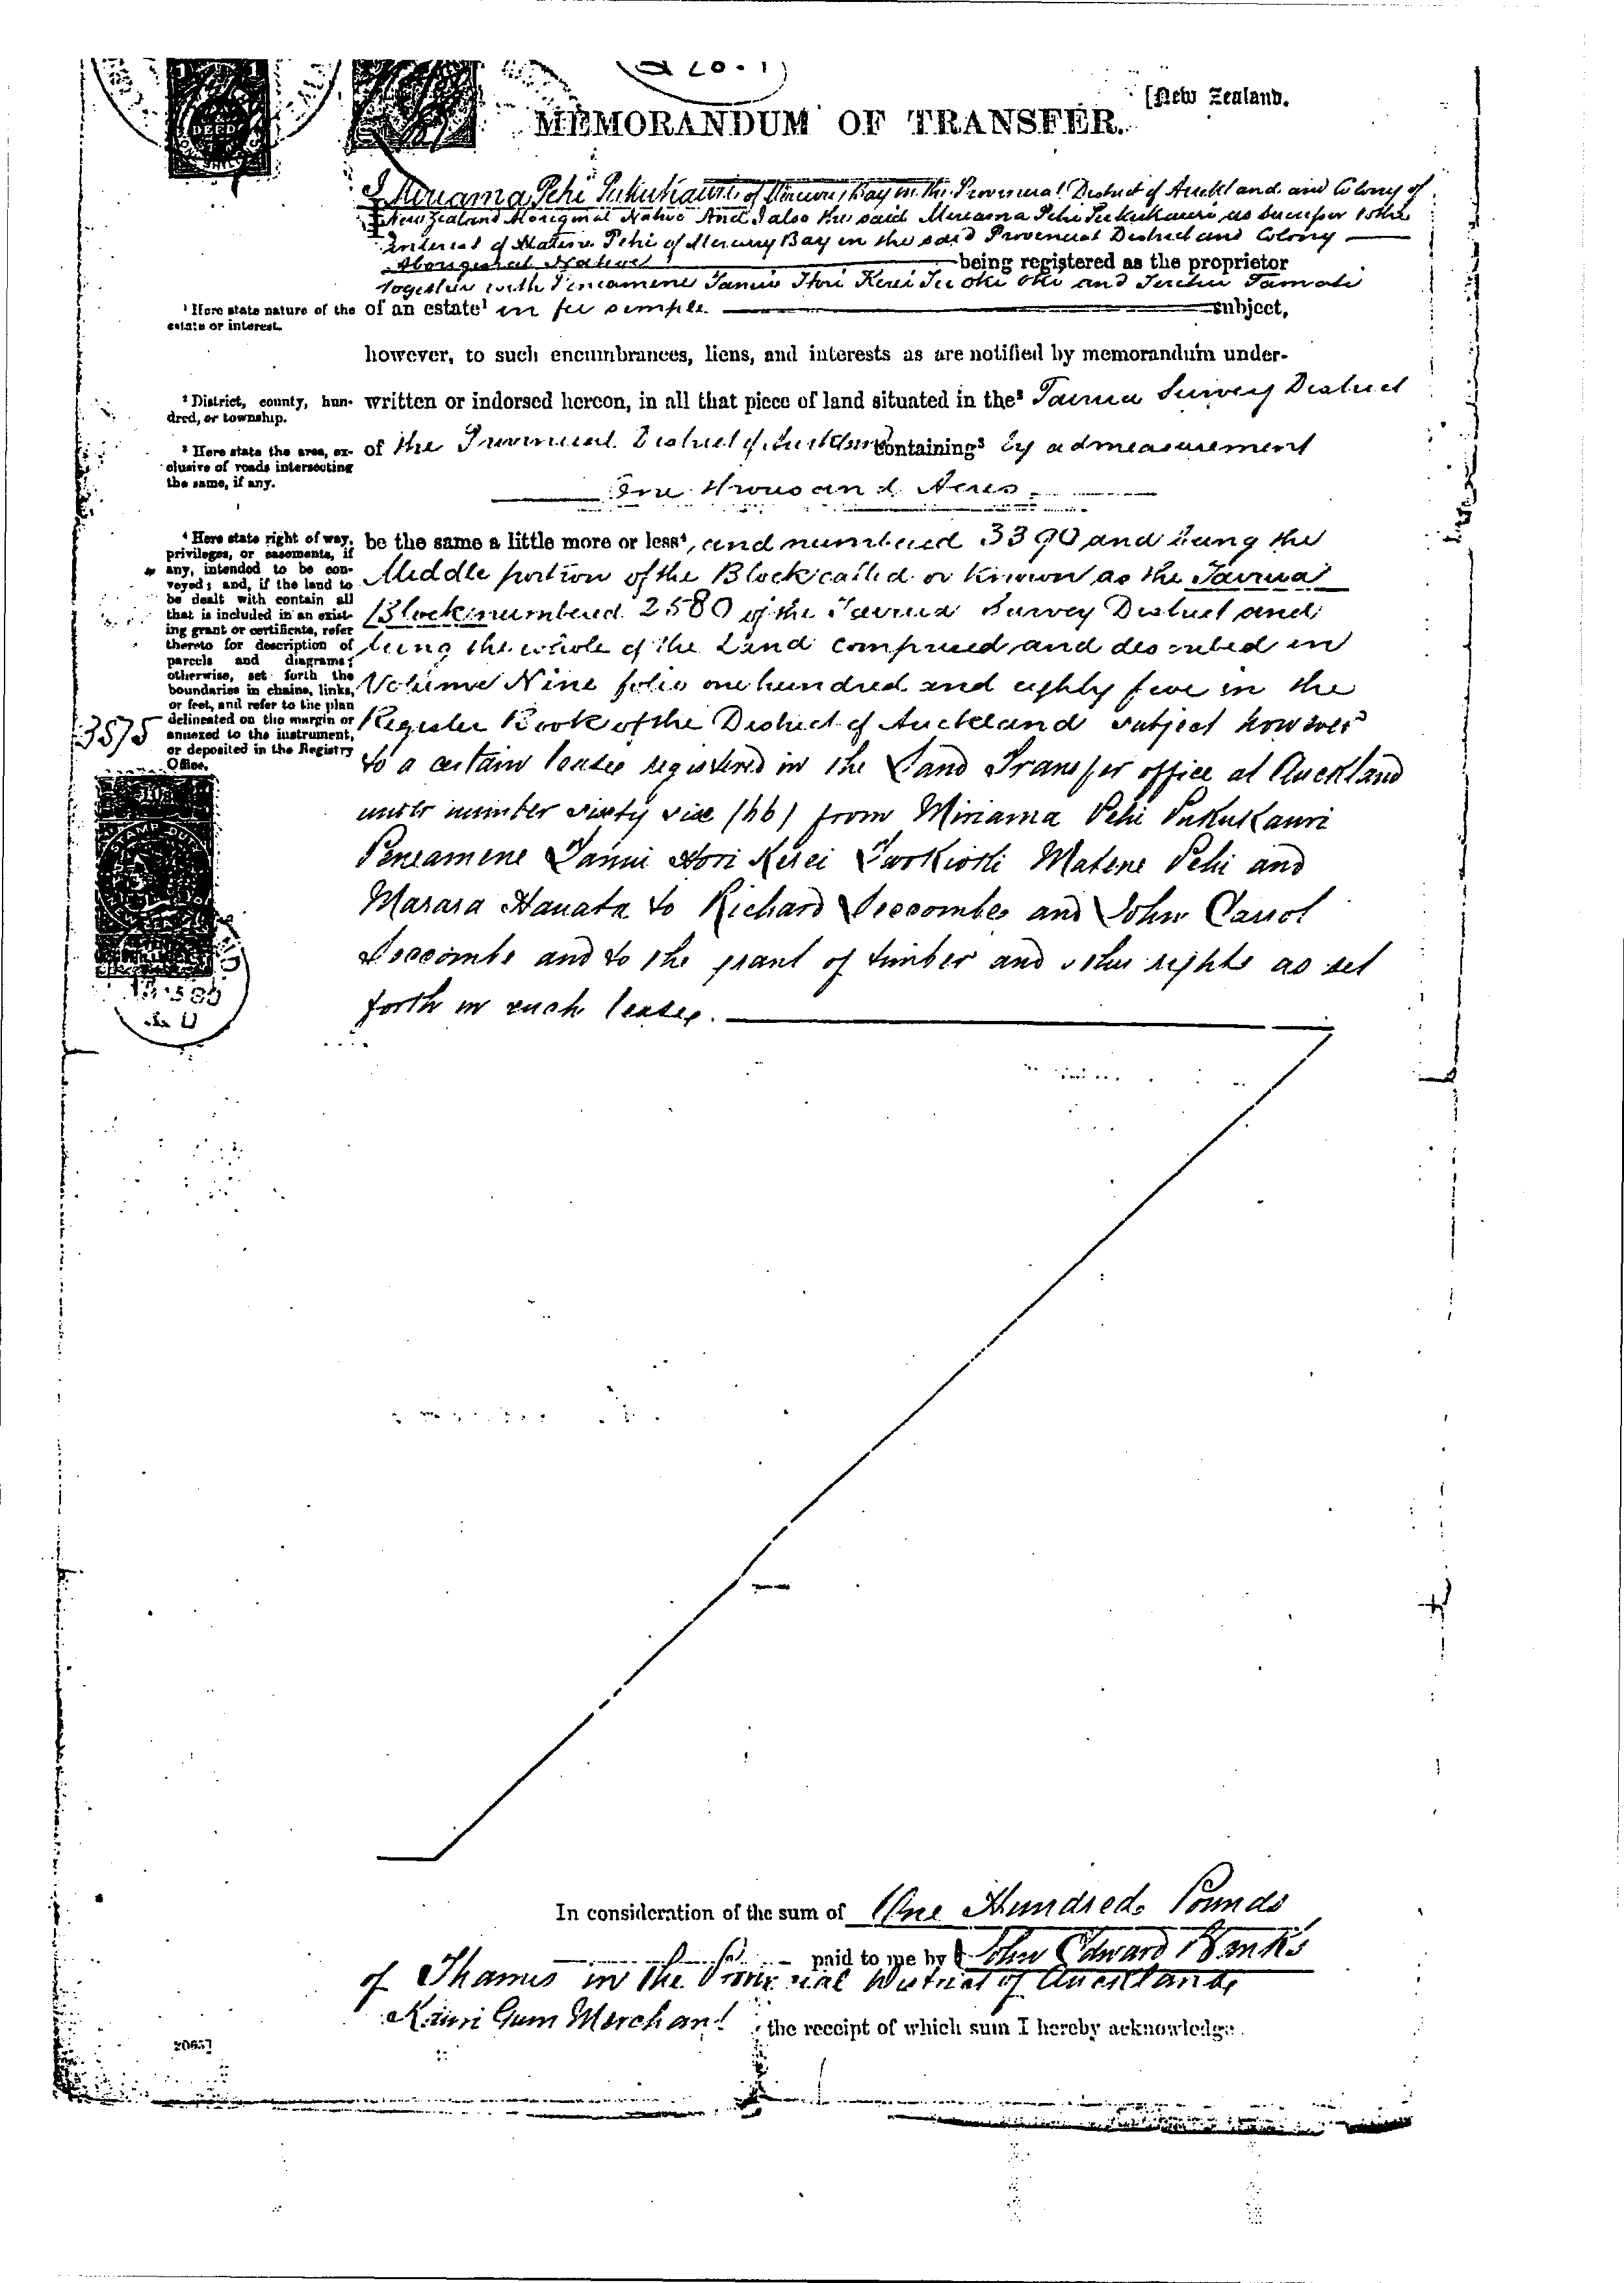 [New Zealand.
MEMORANDUM OF TRANSFER.
I Miriama Pehi Pukukauri of Mercury Bay in the Provincial District of Auckland and Colony of
New Zealand Aboriginal Native And I also the said Miriama Pehi Pukukauri as Successor to the
Interest of Matene Pehi of Mercury Bay in the said Provincial District and Colony
Aboriginal Native being registered as the proprietor
together with Peneamene Tanui Hori Kerei and
¹ Here state nature of the estate or interest.
of an estate¹ in fee simple. subject,
however, to such encumbrances, liens, and interests as are notified by memorandum under-
² District, county, hundred, or township.
written or indorsed hereon, in all that piece of land situated in the² Tairua Survey District
³ Here state the area, exclusive of roads intersecting the same, if any.
of the Provincial District of Auckland containing³ by admeasurement
One thousand Acres
⁴ Here state right of way, privileges, or easements, if any, intended to be conveyed; and, if the land to be dealt with contain all that is included in an existing grant or certificate, refer thereto for description of parcels and diagrams; otherwise, set forth the boundaries in chains, links, or feet, and refer to the plan delineated on the margin or annexed to the instrument, or deposited in the Registry Office.
be the same a little more or less⁴, and numbered 3390 and being the
Middle portion of the Block called or known as the Tairua
Block numbered 2580 of the Tairua Survey District and
being the whole of the Land comprised and described in
Volume Nine folio one hundred and eighty five in the
Register Book of the District of Auckland subject however
3575
to a certain lease registered in the Land Transfer office at Auckland
under number sixty six (66) from Miriama Pehi Pukukauri
Peneamene Tanui Hori Kerei Matene Pehi and
Marara Hauata to Richard Seccombe and John Carrol
Seccombe and to the grant of timber and other rights as set
forth in such lease.
In consideration of the sum of One Hundred Pounds
paid to me by John Edward Banks
of Thames in the Provincial District of Auckland
Kauri Gum Merchant the receipt of which sum I hereby acknowledge.